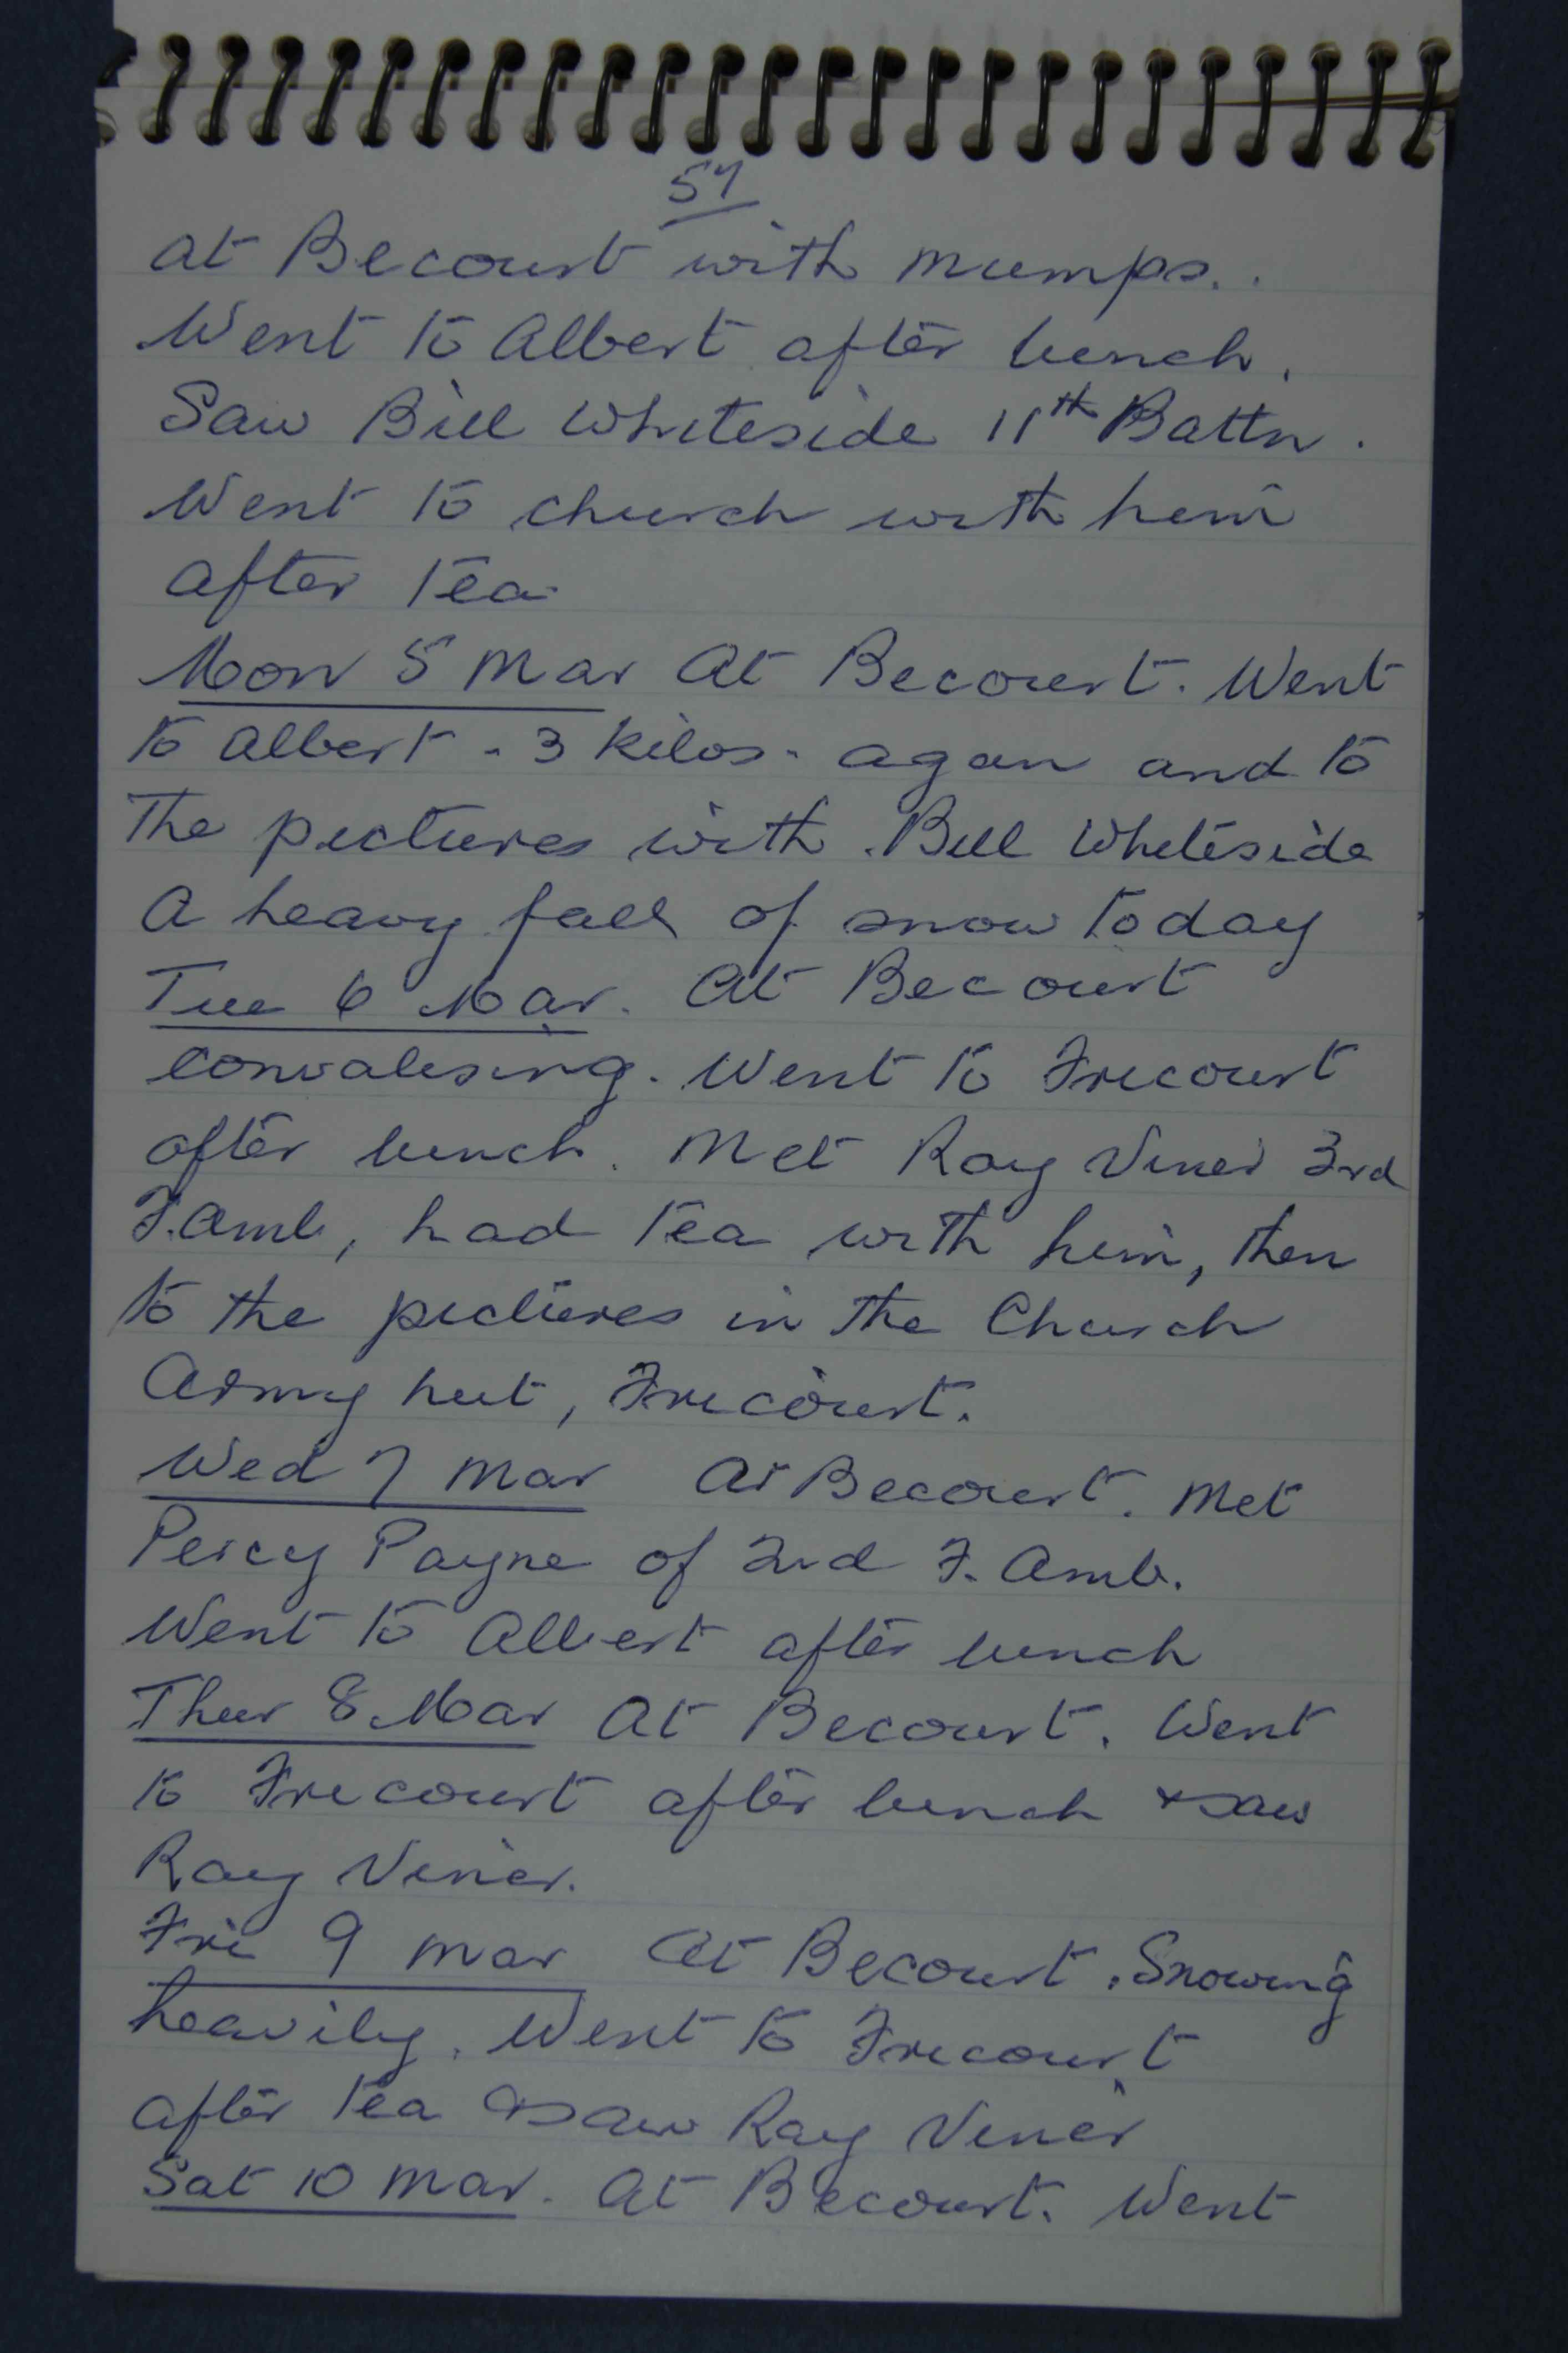 57
at Becourt with mumps.
Went to Albert after lunch.
Saw Bill Whiteside 11th Battn.
Went to church with him
after tea.
Mon 5 Mar At Becourt. Went
to Albert - 3 kilos - again and to
the pictures with Bill Whiteside
A heavy fall of snow today
Tue 6 Mar. At Becourt
convalesing. Went to Fricourt
after lunch. Met Ray Viner 3rd
F. Amb, had tea with him, then
to the pictures in the Church
Army hut, Fricourt.
Wed 7 Mar At Becourt. Met
Percy Payne of 2nd F. Amb.
Went to Albert after lunch
Thur 8 Mar At Becourt. Went
to Fricourt after lunch & saw
Ray Viner.
Fri 9 Mar At Becourt. Snowing
heavily. Went to Fricourt
after tea & saw Ray Viner
Sat 10 Mar. At Becourt. Went